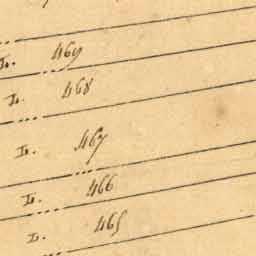 L. 469
L. 468
L. 467
L. 466
L. 465